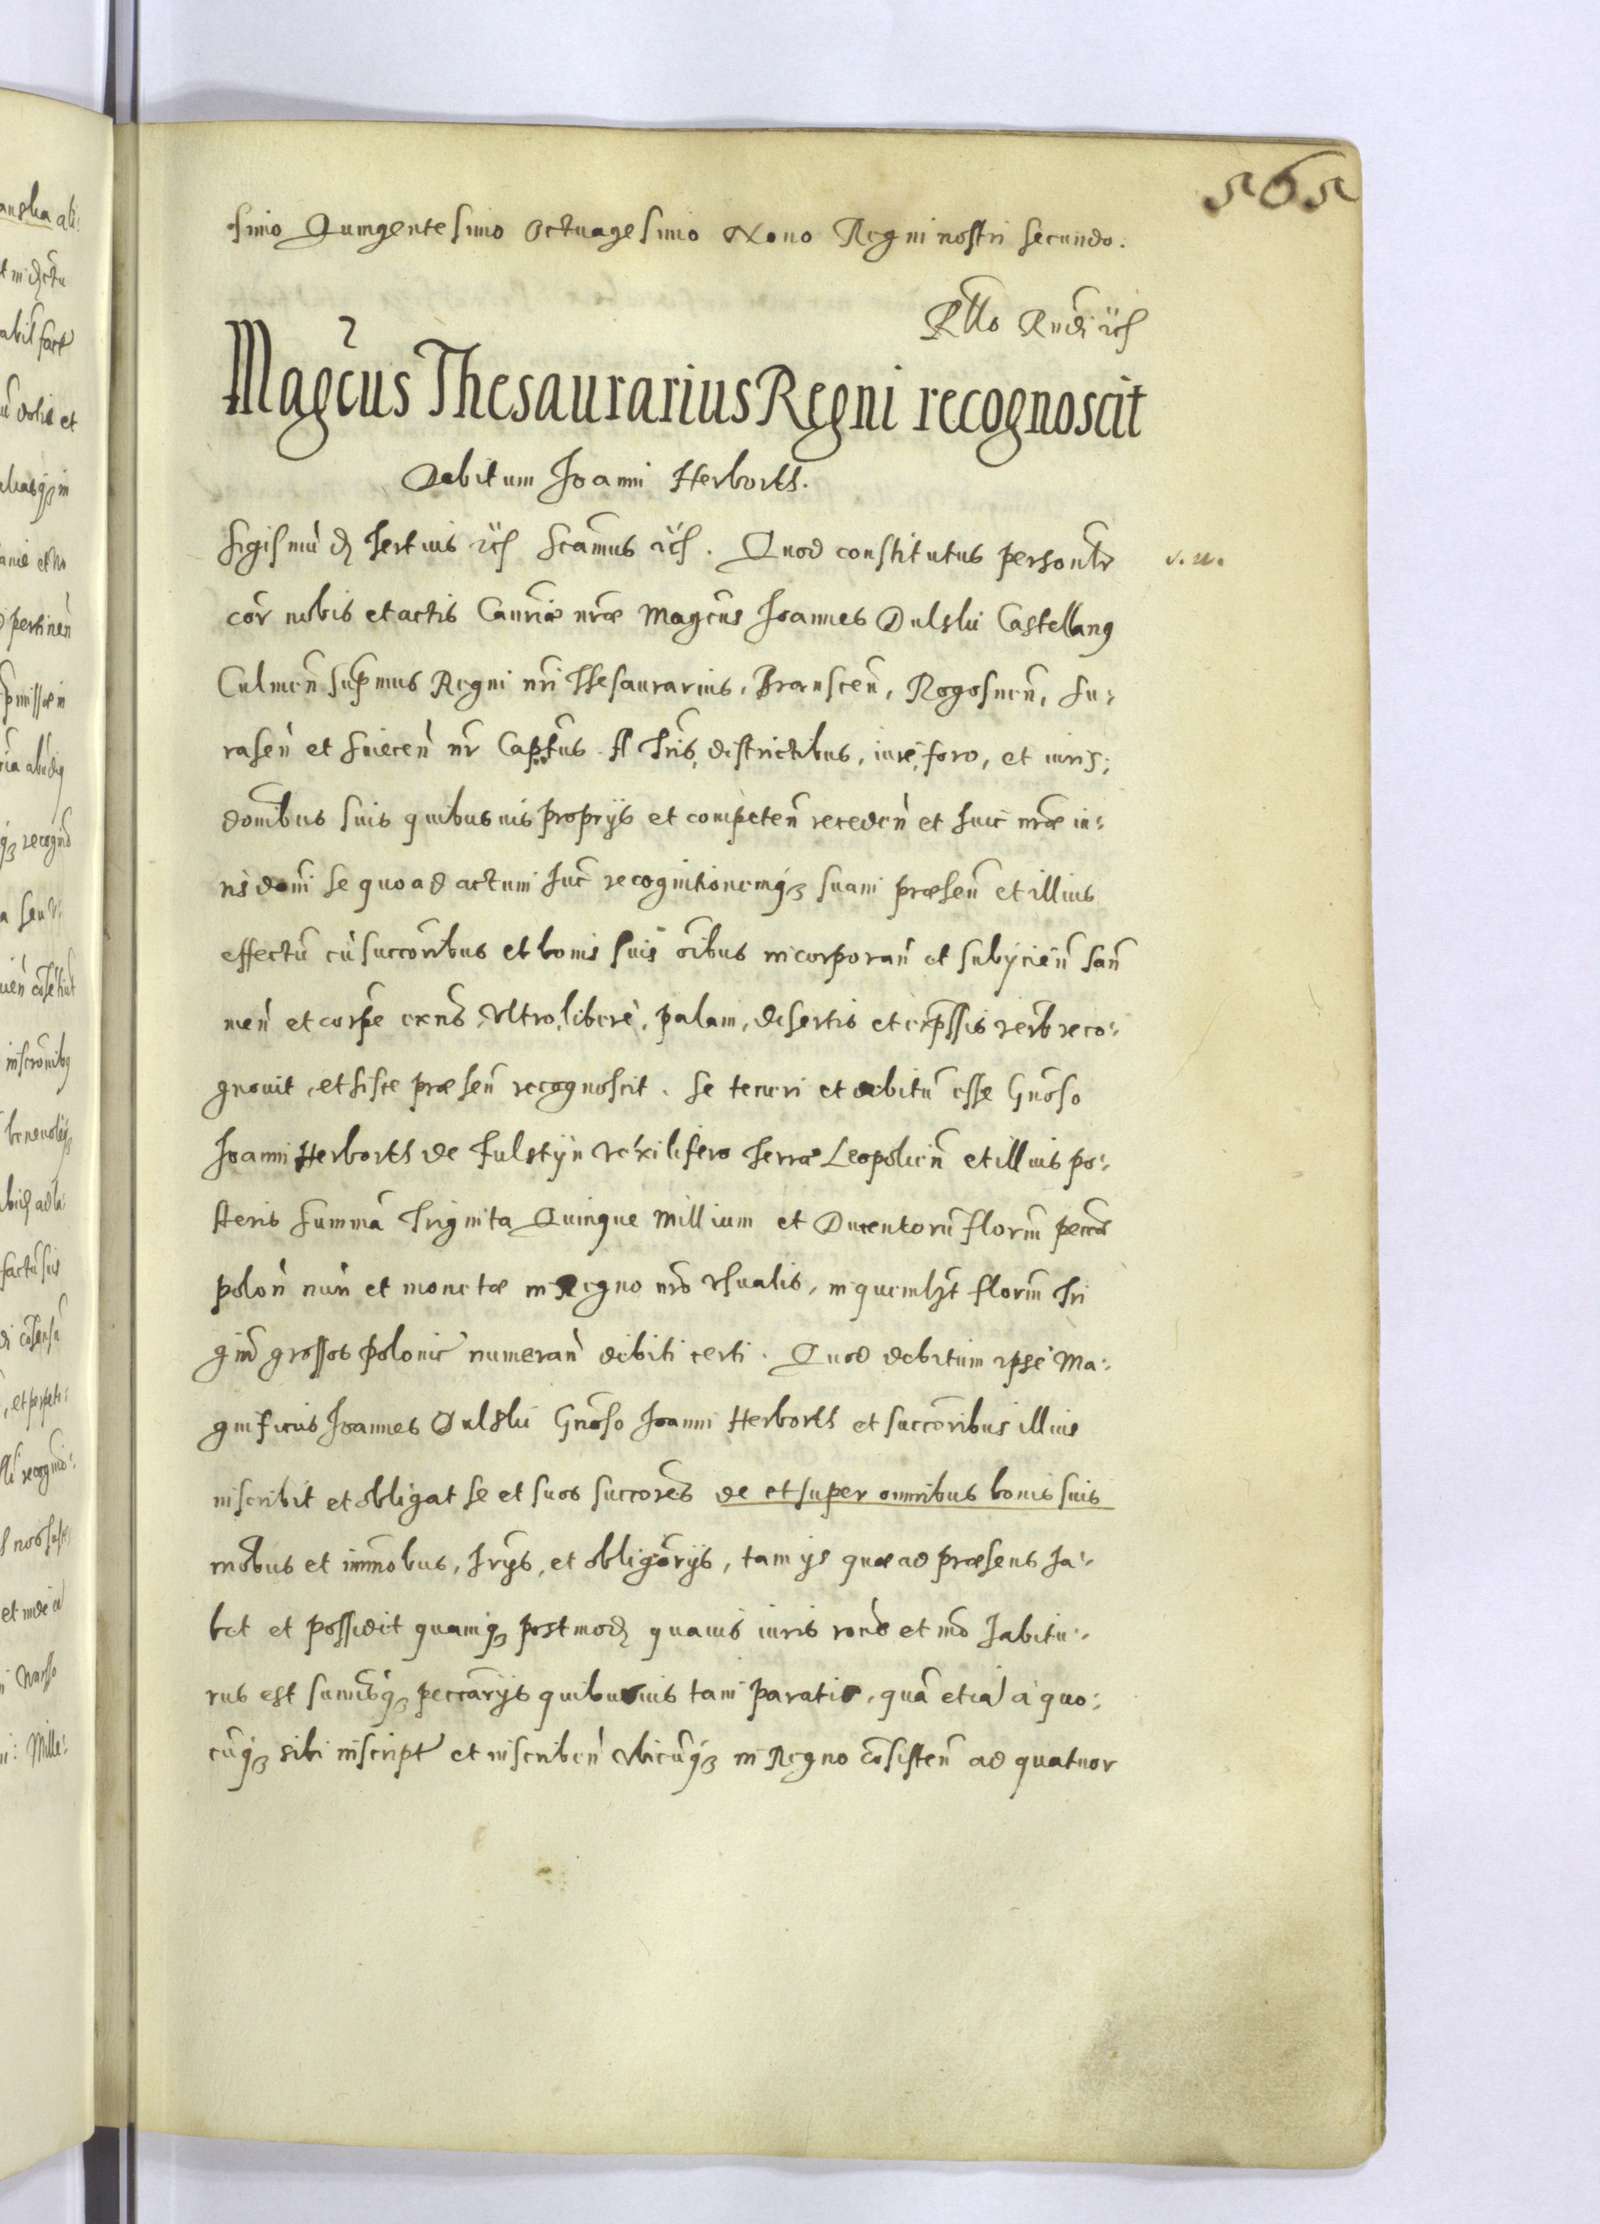 565
simo Quingentesimo Octuagesimo Nono Regni nostri secundo.
Rllo Rndi ꝛcs
Magcus Thesaurarius Regni recognoscit
Debitum Joanni Herborth.
Sigismūd Tertius ꝛcs Scamus ꝛcs. Quod constitutus personlr
cor nobis et actis Canriæ nræ Magcus Joannes Dulski Castellanus
Culmen̄ Supmus Regni nri Thesaurarius, Branscen̄, Rogosnen̄, Su-
rasen̄ et Suiecen̄ nr Captus A Tris, districtibus, iure, foro, et iuris;
donibus suis quibusuis proprijs et competen̄ receden̄ et huic nræ iu-
ris doni se quo ad actum hūc recognitionemq3 suam præsen̄ et illius
effectū cū succoribus et bonis suis oibus incorporan̄ et subijcien̄ san̄
men̄ et corpe exn̄s, Vltro, libere, palam, disertis et expssis verb reco-
gnouit, et hisce præsen̄ recognoscit. Se teneri et debitū esse Gnoso
Joanni Herborth de Fulstÿn Vexilifero Terræ Leopolien̄ et illius po-
steris Summā Triginta Quinque Millium et Ducentorū florin̄ peccæ
polon̄ nun̄ et monetæ in Regno nro Vsualis, in quemlzt florin̄ Tri
gintā grossos polonic numeran̄ debiti certi. Quod debitum ipse Ma-
gnificus Joannes Dulski Gnoso Joanni Herborth et succoribus illius
inscribit et obligat se et suos succores de et super omnibus bonis suis
mobus et immobus, hrijs, et obligorijs, tam ijs quæ ad præsens ha-
bet et possidet quamq3 postmod quauis iuris rone et mo habitu-
rus est summisq3 peccarijs quibusuis tam paratis, quā etiā à quo-
cūq3 sibi inscript et inscriben̄ Vbicūq3 in Regno cōsisten̄ ad quatuor